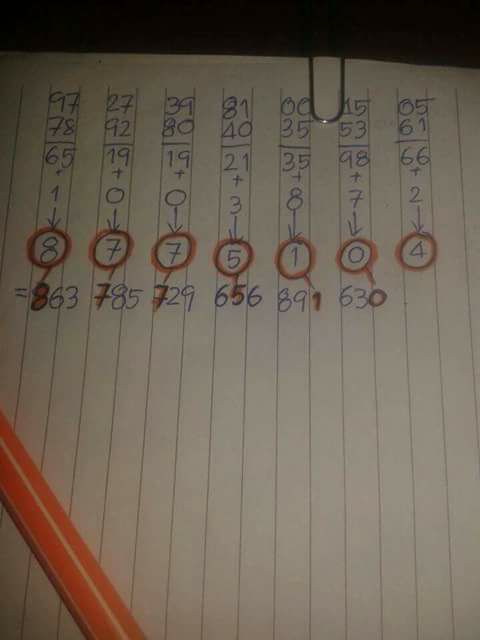 97 27 39 81 00 45 05
78 92 80 40 35 53 61
65 19 19 21 35 98 66
+ + + + + + +
1 0 0 3 8 7 2
8 7 7 5 1 0 4
=863 785 729 656 891 630